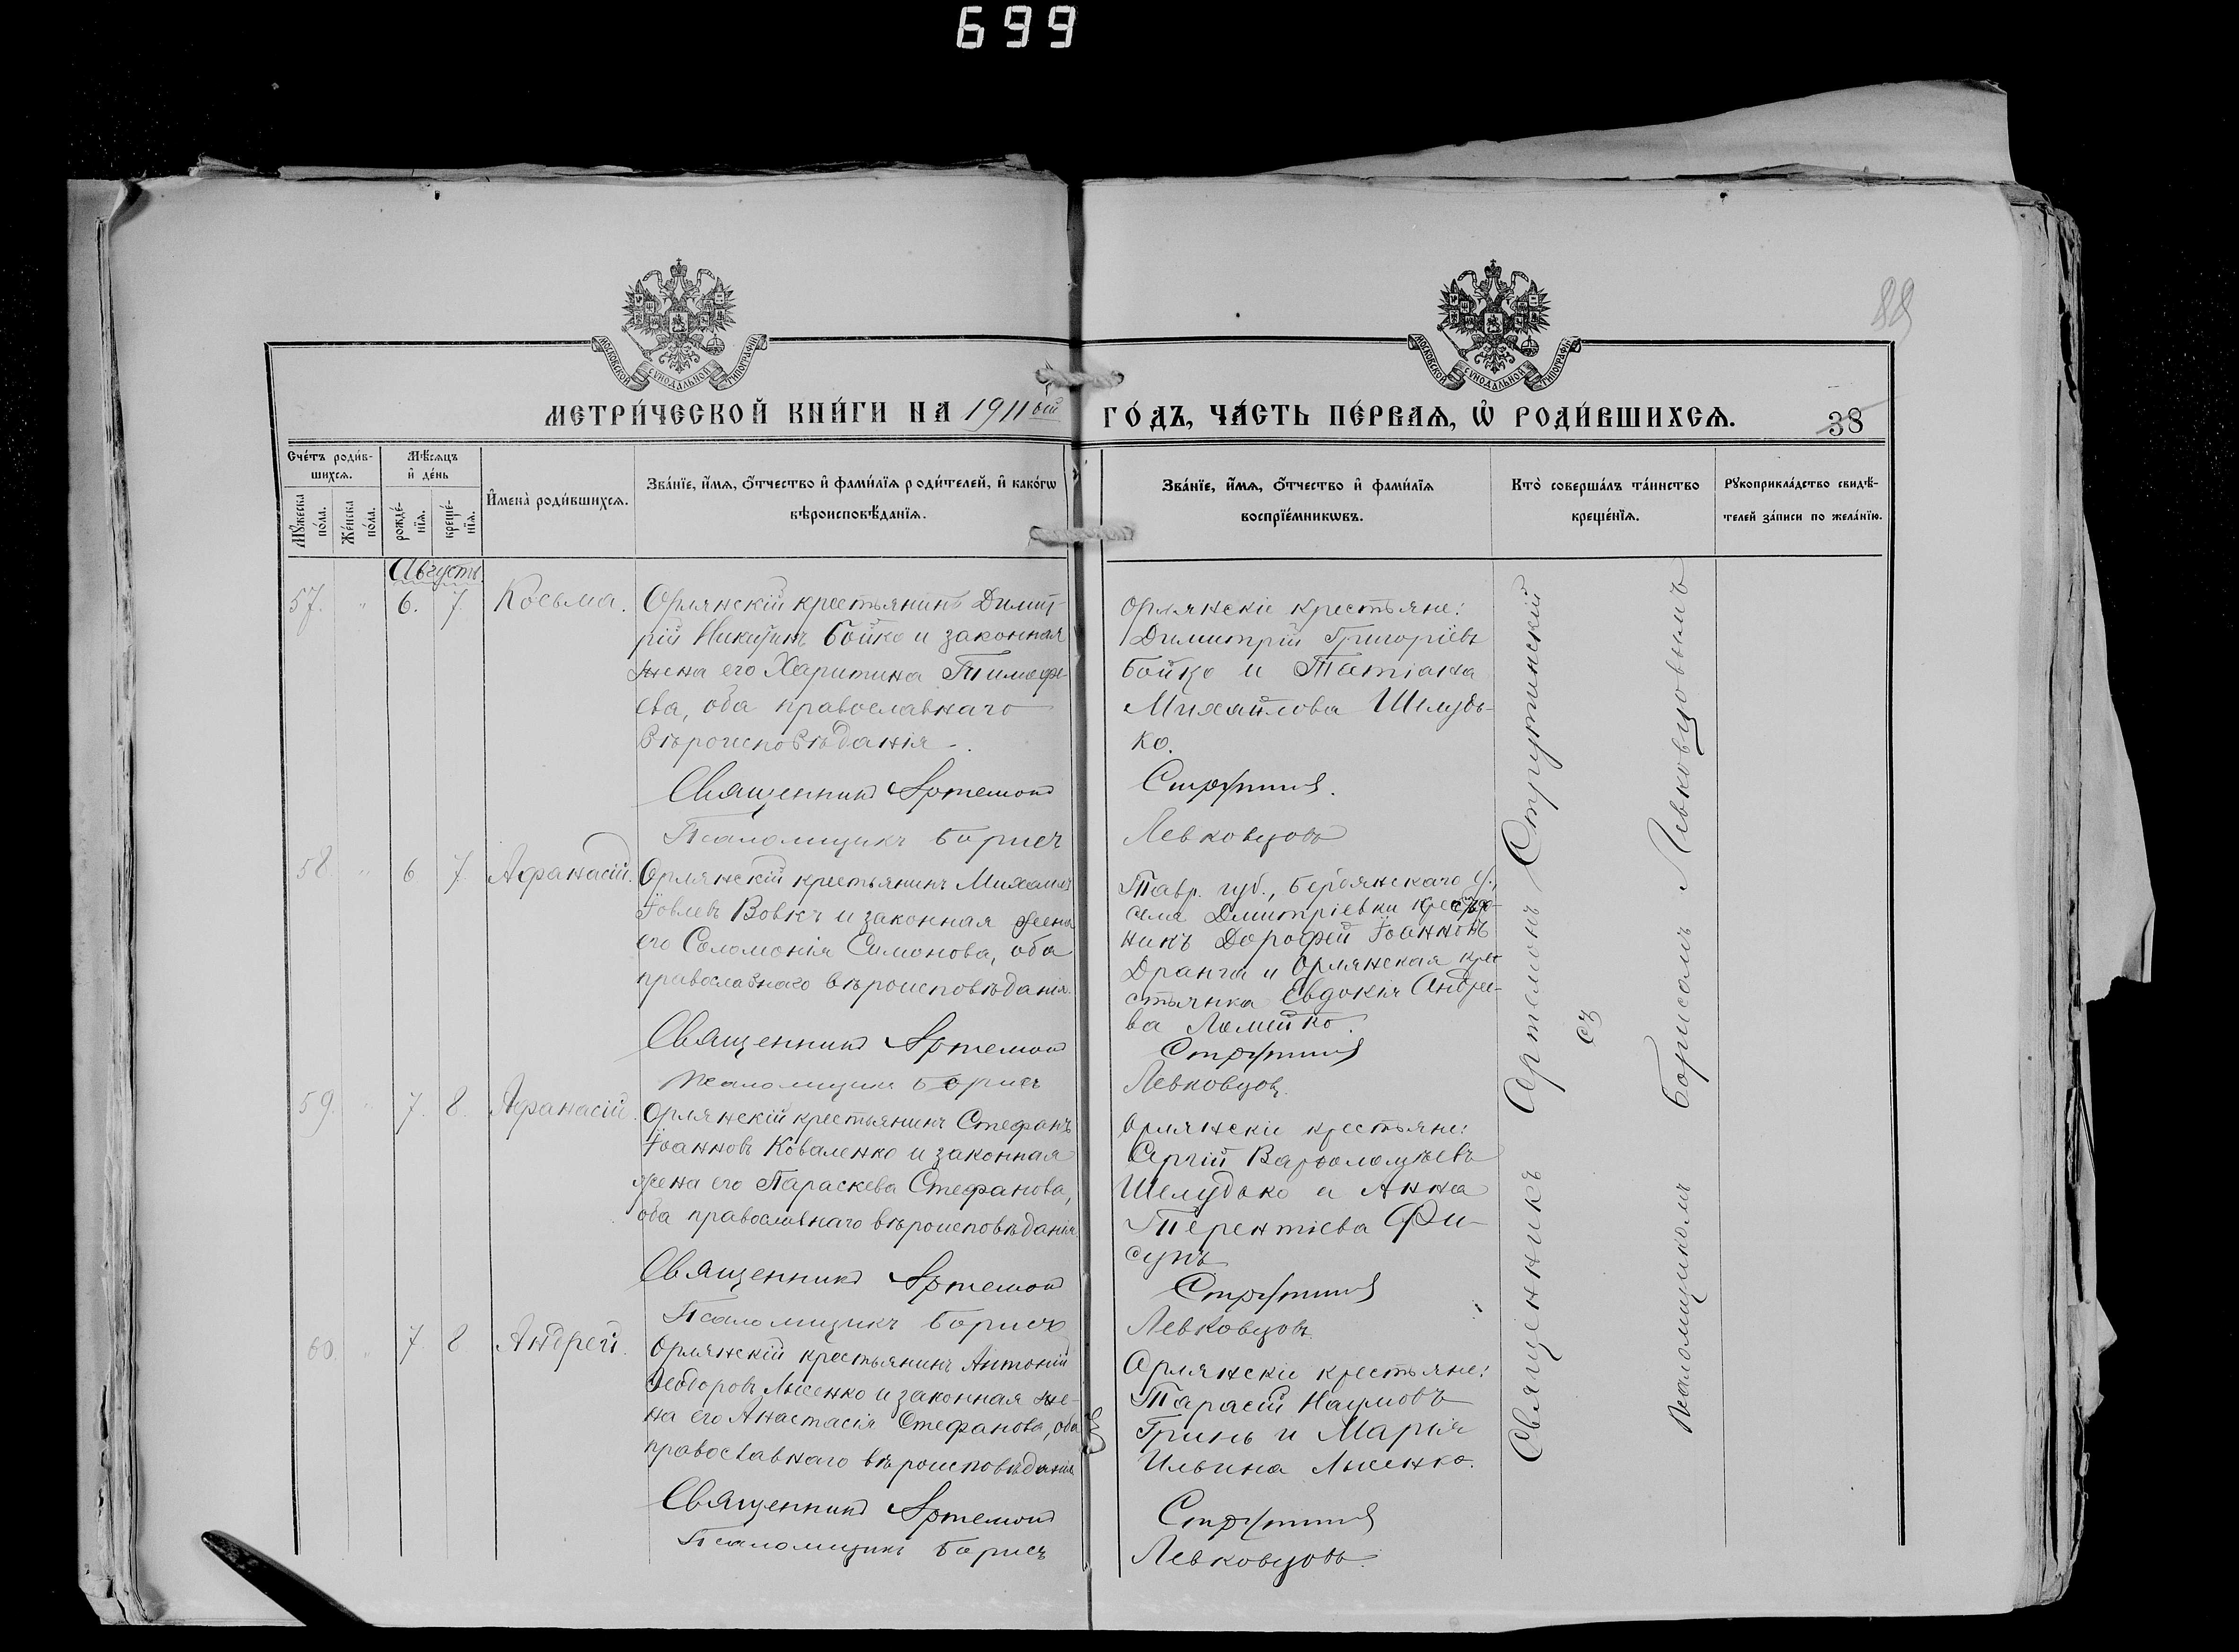 699
88
МОСКОВСКОЙ СѴНОДАЛЬНОЙ ТИПОГРАФІИ
МОСКОВСКОЙ СѴНОДАЛЬНОЙ ТИПОГРАФІИ
МЕТРИ́ЧЕСКОЙ КНИ́ГИ НА 1911ый ГО́ДЪ, ЧА́СТЬ ПЕ́РВАѦ, Ѡ РОДИ́ВШИХСѦ.
38
Сче́тъ роди́в-
шихсѧ.
Мꙋ́жеска по́ла.
Же́нска по́ла.
Мѣ́сѧцъ
и҆ де́нь
рожде́-
нїѧ.
креще́-
нїѧ.
И҆мена̀ роди́вшихсѧ.
Зва́нїе, и҆́мѧ, ѻ҆́тчество и҆ фами́лїѧ роди́телей, и҆ како́гѡ
вѣроисповѣ́данїѧ.
Зва́нїе, и҆́мѧ, ѻ҆́тчество и҆ фами́лїѧ
воспрїе́мникѡвъ.
Кто̀ соверша́лъ та́инство
креще́нїѧ.
Рꙋкоприкла́дство свидѣ́-
телей за́писи по жела́нїю.
Августъ
57. " 6. 7. Косьма.
Орлянскій крестьянинъ Димит-
рій Никитинъ Бойко и законная
жена его Харитина Тимофе-
ева, оба православнаго
вѣроисповѣданія.
Священникъ Артемонъ
Псаломщикъ Борисъ
Орлянскіе крестьяне:
Димитрій Григоріевъ
Бойко и Татіана
Михайлова Шелудь-
ко.
Струтинскій
Левковцовъ
58. " 6 7. Афанасій.
Орлянскій крестьянинъ Михаилъ
Іовлевъ Вовкъ и законная жена
его Соломонія Симонова, оба
православнаго вѣроисповѣданія.
Священникъ Артемонъ
Псаломщикъ Борисъ
Тавр. губ., Бердянскаго у.,
села Дмитріевки
Дорофей Іоанновъ
Дранга и Орлянская кре-
стьянка Евдокія Андрее-
ва Ломейко.
Струтинскій
Левковцовъ
59. " 7. 8. Афанасій.
Орлянскій крестьянинъ Стефанъ
Іоанновъ Коваленко и законная
жена его Параскева Стефанова,
оба православнаго вѣроисповѣданія
Священникъ Артемонъ
Псаломщикъ Борисъ
Орлянскіе крестьяне:
Сергій Варѳоломѣевъ
Шелудько и Анна
Терентіева Фи-
сунъ
Струтинскій
Левковцовъ
60. " 7. 8. Андрей.
Орлянскій крестьянинъ Антоній
Ѳеодоровъ Лысенко и законная же-
на его Анастасія Стефанова, оба
православнаго вѣроисповѣданія
Священникъ Артемонъ
Псаломщикъ Борисъ
Орлянскіе крестьяне:
Тарасій Наумовъ
Гринь и Марія
Ильина Лысенко.
Струтинскій
Левковцовъ.
Священникъ Артемонъ Струтинскій
съ
Псаломщикомъ Борисомъ Левковцовымъ